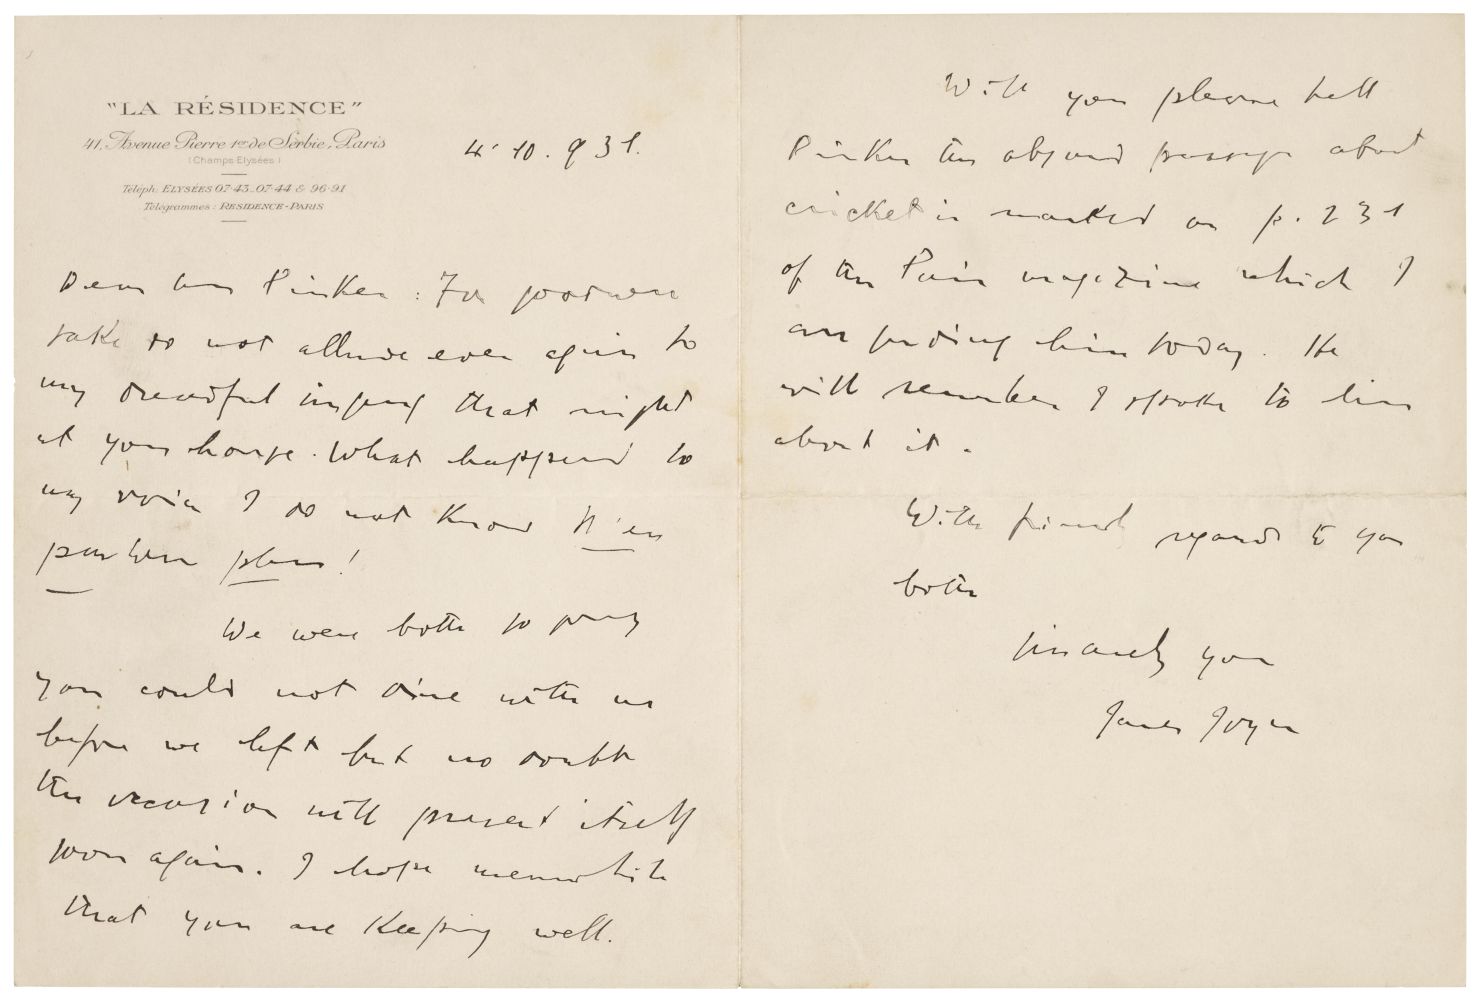 "LA RÉSIDENCE"
41, Avenue Pierre 1er de Serbie, Paris
(Champs Elysées)
Téléph: ELYSÉES 07-43_07-44 & 96-91
Télégrammes: RESIDENCE-PARIS
4.10.931.
Dear Mrs Pinker: For goodness
sake do not allude ever again to
my dreadful singing that night
at your house. What happened to
my voice I do not know N'en
parlons plus!
We were both so sorry
you could not dine with us
before we left but no doubt
the occasion will present itself
soon again. I hope meanwhile
that you are keeping well.
Will you please tell
Pinker the absurd passage about
cricket is marked on p. 231
of the Paris magazine which I
am sending him today. He
will remember I spoke to him
about it.
With friendly regards to you
both
sincerely yours
James Joyce